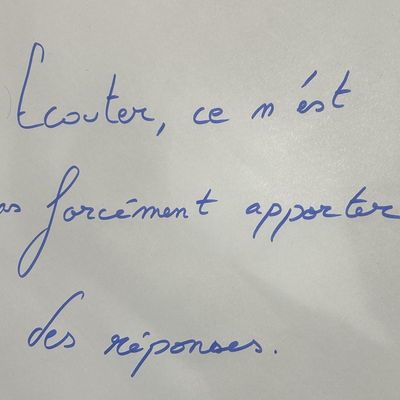 Écouter, ce n'est
pas forcément apporter
des réponses.